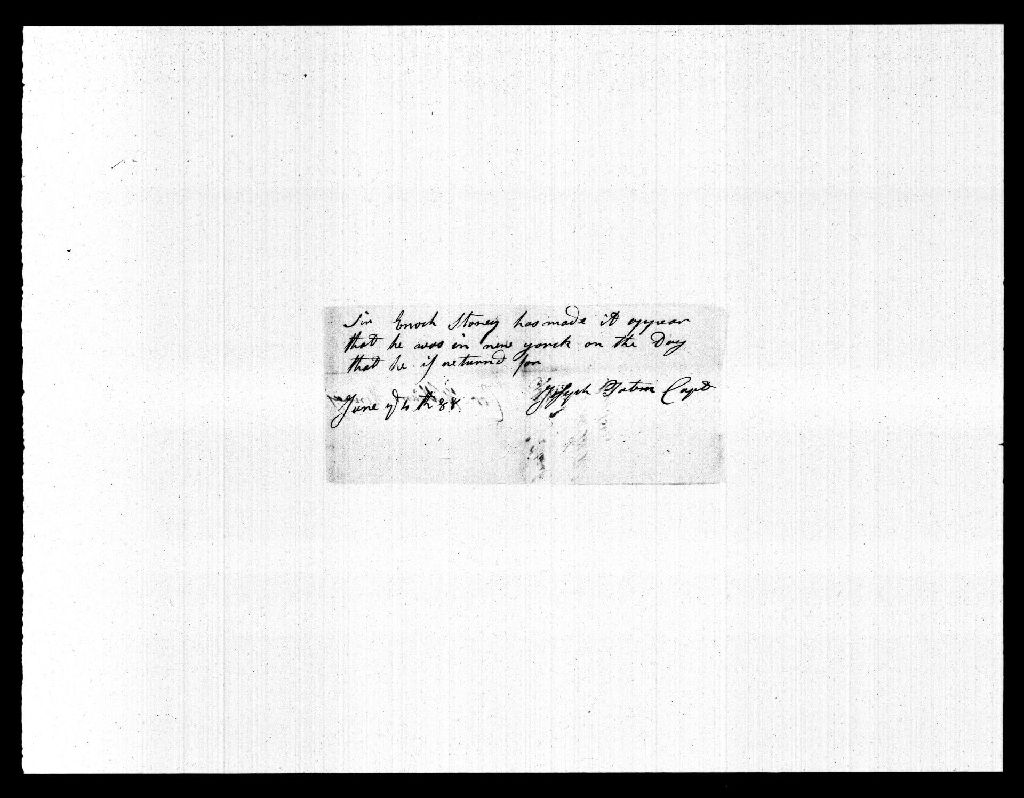 Sir Enoch Storrey has made it appear
that he was in new yorck on the Day
that he if returnd for
Joseph Tatem Capt
June ye 4 th 88